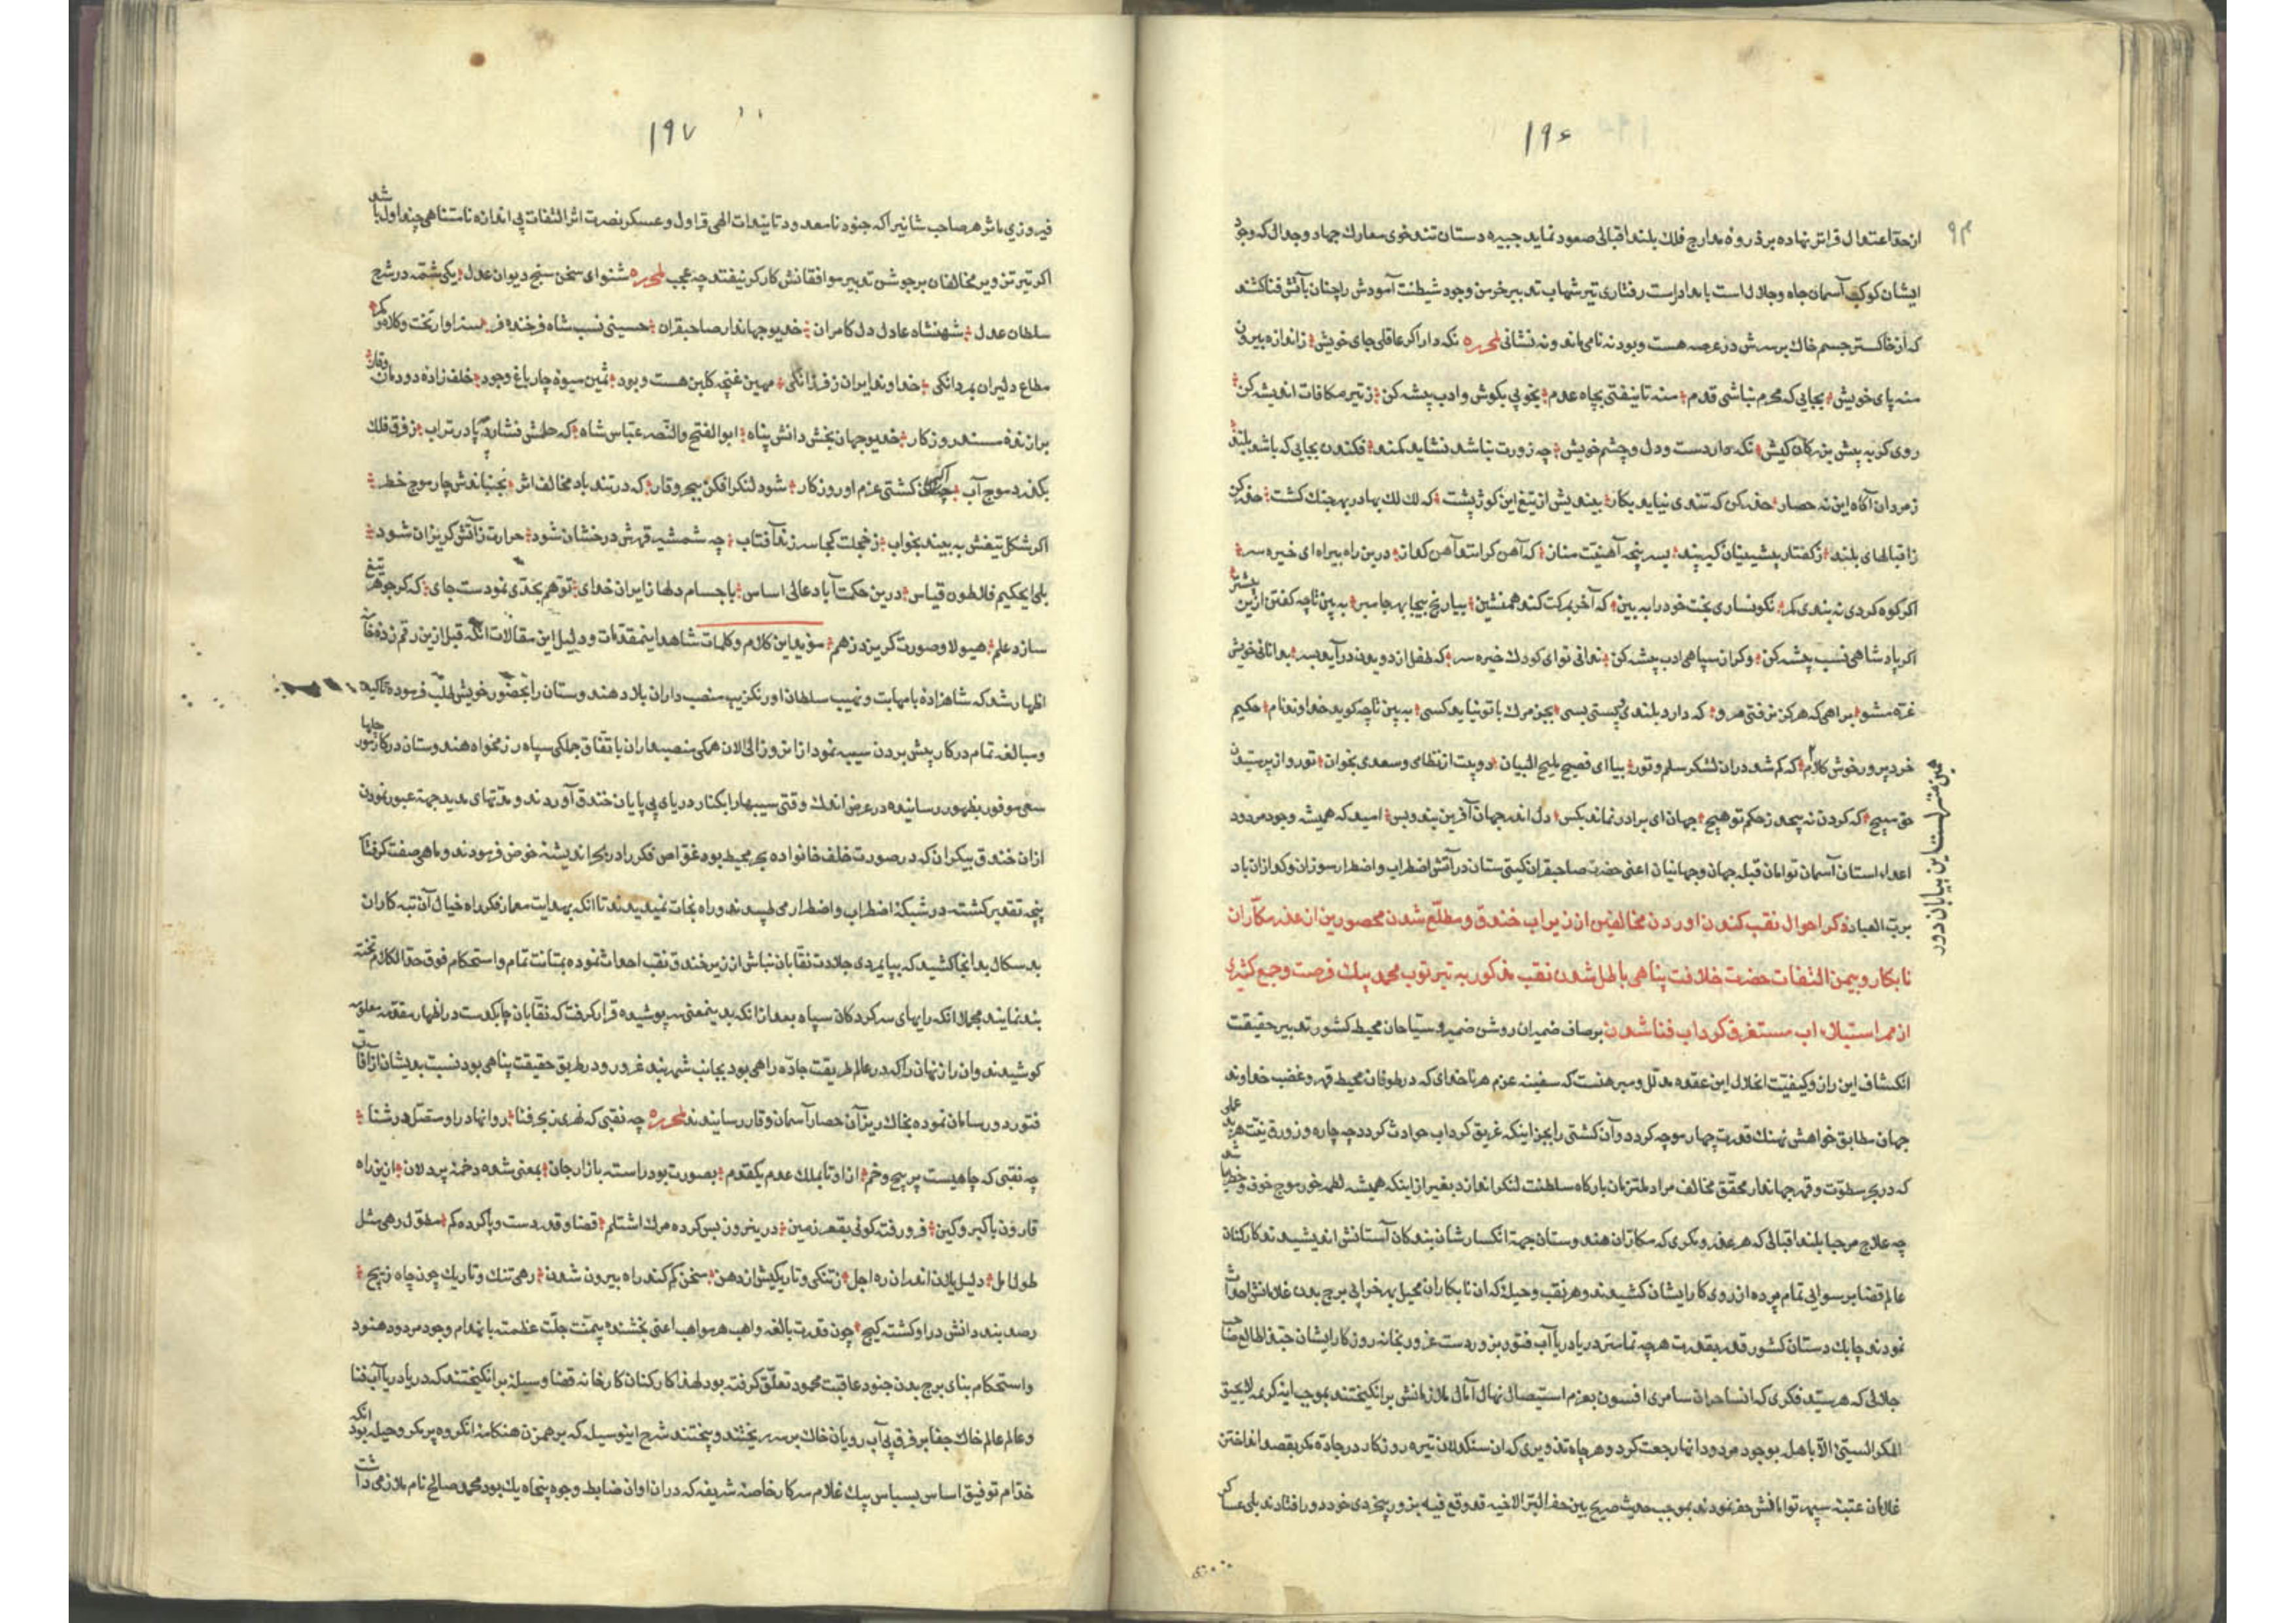 ۱۹۶
۹۴
از حد اعتدال فراتر نهاده بر ذروه مدارج فلك بلند اقبالی صعود نماید چیره دستان تندخوی معارك جهاد و جدال که وجود
ایشان کوکب آسمان جاه و جلال است با مداد راست رفتاری تیر شهاب تدبیر خرمن وجود شیطنت آمودش را چنان بآتش فنا کشند
که از خاکستر جسم خاك برسرش در عرصه هست و بود نه نامی ماند و نه نشانی لمحرره نکه دار اکر عاقلی جای خویش ز اندازه بیرون
منه پای خویش بجایی که محرم نباشی قدم منه تا نیفتی بچاه عدم بخوبی بکوش و ادب پیشه کن ز تیر مکافات اندیشه کن
روی کر به پیش بزرکان کیش نکه دار دست و دل و چشم خویش چه زورت نباشد نشاید کمند فکندن بجایی که باشد بلند
ز مردان آکاه این نه حصار حذر کن که تندی نیاید بکار بیندیش از تیغ این کوژپشت که لك لك بهادر بهر جنك کشت حذر کن
ز اقبالهای بلند ز کفتار پیشینیان کیر پند بسر پنجه آهنیت منان که آهن کر استد آهن کمانه درین راه بیراه ای خیره سر
اکر کوه کردی نه بندی کمر نکونساری بخت خود را به بین که آخر بمرکت کند همنشین بیا رنج بیجا بهر جا مبر به بین تا چه کفتن ازین بیشتر
اکر پادشاهی نسب پیشه کن وکر از سپاهی ادب پیشه کن ندانی تو ای کودك خیره سر که طفل از دویدن درآید بسر بدانائی خویش
غره مشو براهی که هرکز نرفتی مرو که دارد بلندی و پستی بسی بجز مرك با تو نیاید کسی به بین تا چه کوید خداوند نام حکیم
خردپرور خوش کلام که کم شد دران لشکر سلم و تور بیا ای فصیح بلیح البیان دو بیت از نظامی و سعدی بخوان تو رو از پرستیدن
حق مپیچ که کردن نه پیچد ز حکم تو هیچ جهان ای برادر نماند بکس دل اندر جهان آفرین بند و بس امید که همیشه وجود مردود
اعداء استان آسمان توامان قبله جهان و جهانیان اعنی حضرت صاحبقران کیتی ستان در آتش اضطراب و اضطرار سوزان و کدازان باد
برب العباد ذکر احوال نقب کندن اوردن مخالفین از زیر اب خندق و مطلّع شدن محصورین از غدر مکاران
نابکار و بیمن التفات حضرت خلافت پناهی باطل شدن نقب مذکور به تیر توب محمد بیك فرصت و جمع کثیری
از ممر استیلاء اب مستغرق کرداب فنا شدن بر صاف ضمیران روشن ضمیر و سیاحان محیط کشور تدبیر حقیقت
انکشاف این راز و کیفیّت انحلال این عقده مدلل و مبرهنست که سفینه عزم هر ناخدای که در طوفان محیط قهر و غضب خداوند
جهان مطابق خواهش نهنك قدرت چهار موجه کردد و آن کشتی را بجز اینکه غریق کرداب حوادث کردد چه چاره و زورق
که در بحر سطوّت و قهر جهاندار محقق مخالف مراد ملتزمان بارکاه سلطنت لنکر اندازد بغیر از اینکه همیشه لطمه خور موج خوف و خطر
چه علاج مرحبا بلند اقبالی که هر غدر و مکری که مکاران هندوستان جهة انکسار شان بندکان آستانش اندیشیدند کارکنان
عالم قضا برسوایی تمام پرده از روی کار ایشان کشیدند و هر نقب و حیله که ان نابکاران محیل بهر خرابی برج بدن غلامانش احداث
نمودند چابك دستان کشور قدر بقدرت هر چه تمامتر دریا دریا آب فتور بزور دست غرور بخانه روزکار ایشان
جلالی که هر سیّد فکری که ان ساحران سامری افسون بعزم استیصال نهال آمال ملازمانش برانکیختند بموجب اینکریمه لایحیق
المکر السیئ الا باهله بوجود مردود انها رجعت کرد و هر چاه تدویری که ان سنکدلان تیره روزکار در جاده مکر بقصد انداختن
غلامان عتبه سپهر توامانش حفر نمودند بموجب حدیث صحیح من حفر البئر لاخیه قد وقع فیه بزور بیخردی خود دور افتادند بلی عساکر
همین منزلست این بیابان دور
۱۹۷
فیروزی ماثر هر صاحب شانیرا که جنود نامعدود تاییدات الهی قراول و عسکر نصرت اثر التفات بی اندازه نامتناهی چنداول باشد
اکر تیر تزویر مخالفان بر جوشن تدبیر موافقانش کارکر نیفتد چه عجب لمحرره شنو ای سخن سنج دیوان عدل یکی شمّه در شرح
سلطان عدل شهنشاه عادل دل کامران خدیو جهاندار صاحبقران حسینی نسب شاه فرخنده فر سزاوار تخت و کلاه و کمر
مطاع دلیران بمردانکی خداوند ایران ز فرزانکی مهین غنچه کلبن هست و بود ثمین میوه چار باغ وجود خلف زاده دودمان وقار
برازنده مسند روزکار خدیو جهان بخش دانش پناه ابوالفتح والنّصر عبّاس شاه که حلمش فشارد چو پا در تراب ز فرق فلك
بکذرد موج آب کشتی عزم او روزکار شود لنکر افکن ببحر وقار که در تند باد مخالف اش نجنباندش چار موج خطر
اکر شکل تیغش به بیند بخواب ز خجلت کجا سر زند آفتاب چه شمشیر قهرش درخشان شود حرارت ز آتش کریزان شود
بلی ایحکیم فلاطون قیاس درین حکمت آباد عالی اساس باجسام دلها ز ایران خدای توهم بحدی نمودست جای که کر جوهر تیغ
سازد علم هیولا و صورت کریزد ز هم مؤید این کلام و کلمات شاهد اینمقدمات و دلیل این مقالات انکه قبل ازین رقم زده خامه
اظهار شد که شاهزاده با مهابت و نهیب سلطان اورنکزیب منصب داران بلاد هندوستان را بحضور خویش طلب فرموده تاکید
و مبالغه تمام در کار پیش بردن سیبه نمود از انروز الی الان همکی منصبداران باتفاق جملکی سپاه رزمخواه هندوستان در کار مزبور
سعی موفور بظهور رسانیده در عرض اندك وقتی سیبهارا بکنار دریای بی پایان خندق آوردند و مدتهای مدید جهة عبور نمودن
ازان خندق بیکران که در صورت خلف خانواده بحر محیط بود غواص فکر را در بحر اندیشه خوض فرمودند و ماهی صفت کرفتار
پنجه تقدیر کشته در شبکه اضطراب و اضطرار می طپیدند و راه نجات نمیدیدند تا انکه بهدایت معمار فکر راه خیال آن تبه کاران
بدسکال بدانجا کشید که بپایمردی جلادت نقابان نباش از زیر خندق نقب احداث نموده بمتانت تمام و استحکام فوق حد الکلام تخته
بند نمایند مجملا انکه رایهای سرکردکان سپاه بعد از انکه بدینمعنی سرپوشیده قرار کرفت که نقابان چابکدست در اظهار مقدمه معلومه
کوشیدند وان راز نهان را که در عالم طریقت جاده راهی بود بجانب شهر بند غرور و در طریق حقیقت پناهی بود نسبت بدیشان از آفات
فتور دور سامان نموده بخاك ریز آن حصار آسمان وقار رسانیدند لمحرره چه نقبی که نهری ز بحر فنا روانها درا و متصل در شنا
چه نقبی که چاهیست پر پیچ و خم از او تا بملك عدم یکقدم بصورت بود راسته بازار جان بمعنی شده دخمه پر دلان ازین راه
قارون با کبر و کین فرو رفته کوئی بقعر زمین درینره ز بس کرده مرك اشتلم قضا و قدر دست و پا کرده کم مطول رهی مثل
طول امل دلیل یلان اندران ره اجل ز تنکی و تاریکیش از دهن سخن کم کند راه بیرون شدن رهی تنك و تاریك چون چاه زیج
رصد بند دانش درا و کشته کیج چون قدرت بالغه واهب هر مواهب اعنی بخشنده بیمنّت جلّت عظمته بانهدام وجود مردود هنود
و استحکام بنای برج بدن جنود عاقبت محمود تعلّق کرفته بود لهذا کارکنان کارخانه قضا وسیله برانکیختند که دریا دریا آب فنا
و عالم عالم خاك جفا بر فرق بی آب رویان خاك برسر ریختند و بیختند شرح اینوسیله که بر همزن هنکامه انکروه پر مکر و حیله بود انکه
خدّام توفیق اساس بسیاس بیك غلام سرکار خاصه شریفه که در ان اوان ضابط وجوه پنجاه یك بود محمد صالح نام ملازمی داشت